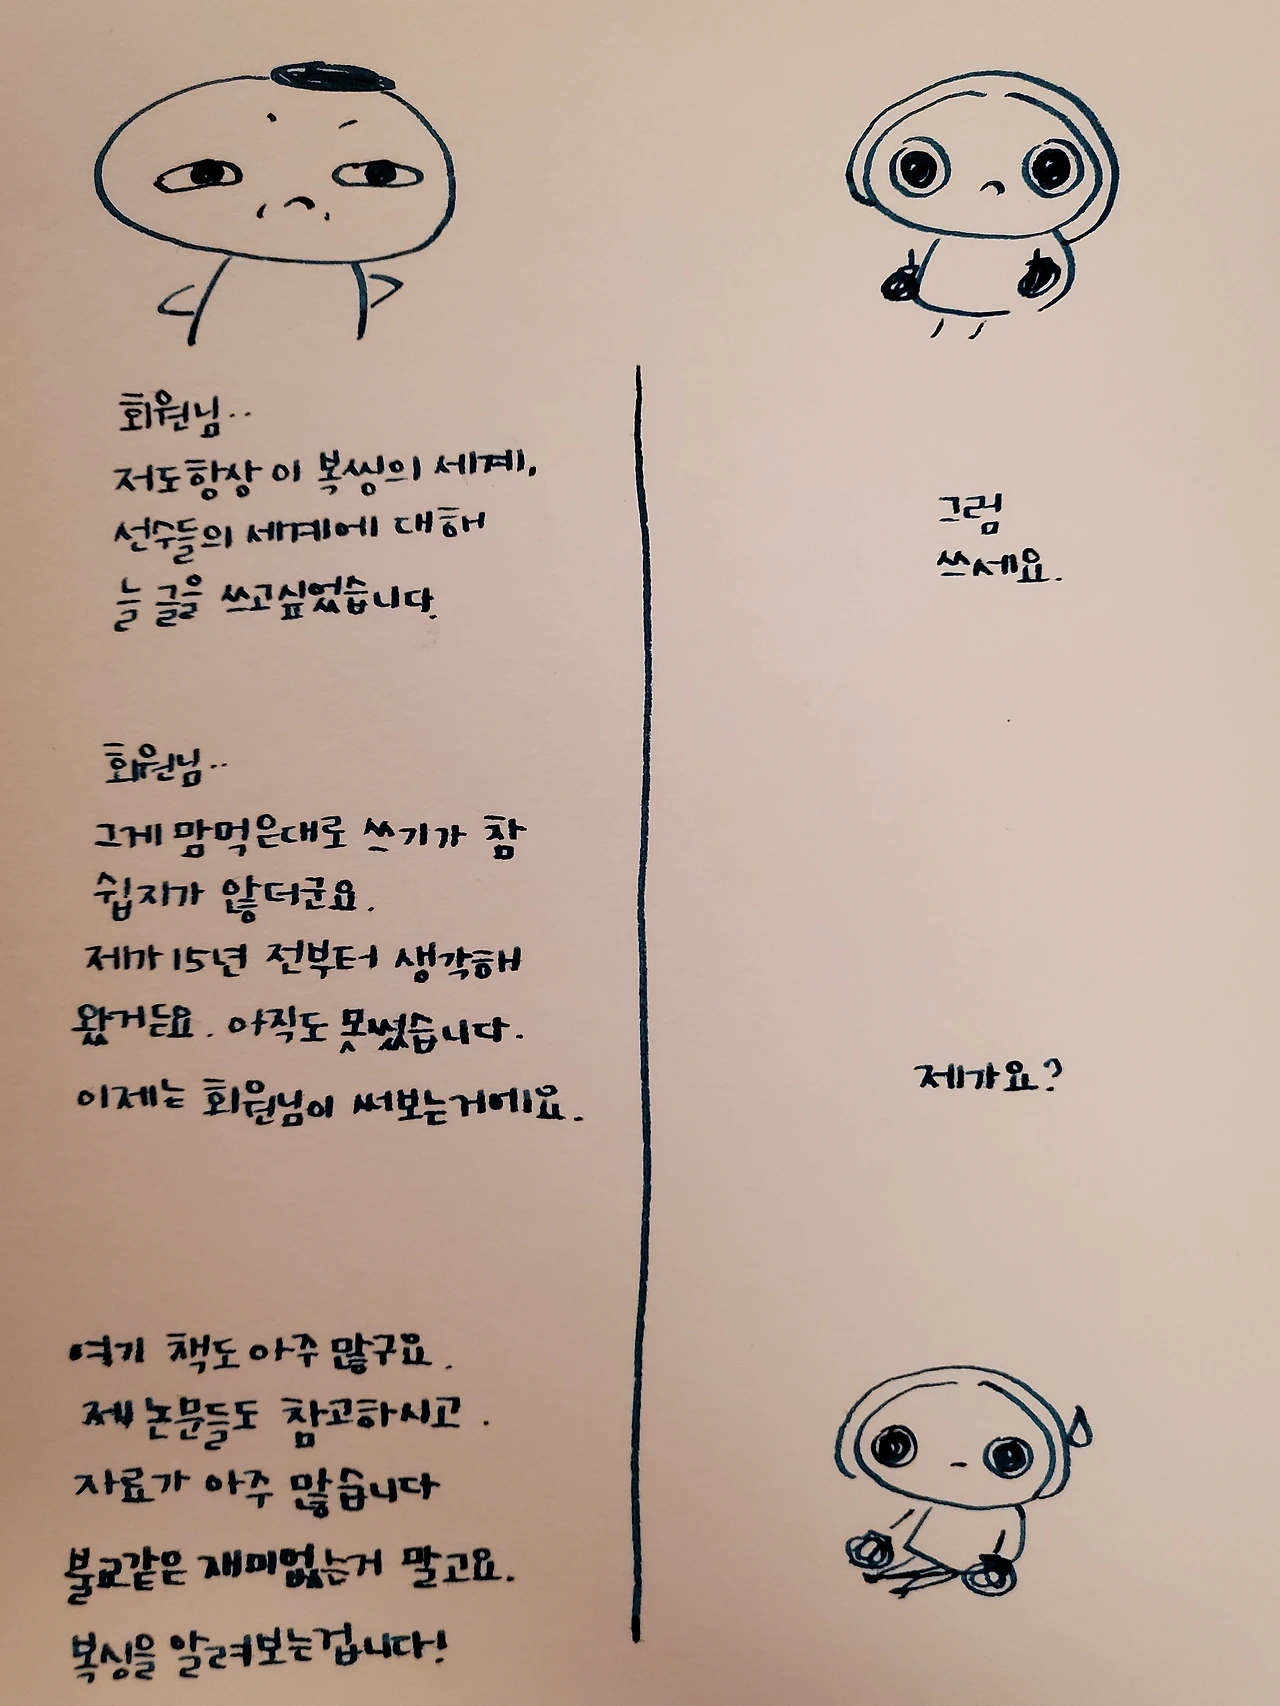 회원님..
저도항상 이 복씽의 세계,
선수들의 세계에 대해
늘 글을 쓰고싶었습니다.
그럼
쓰세요.
회원님..
그게 맘먹은대로 쓰기가 참
쉽지가 않더군요.
제가 15년 전부터 생각해
왔거든요. 아직도 못썼습니다.
이제는 회원님이 써보는거에요.
제가요?
여기 책도 아주 많구요.
제 논문들도 참고하시고.
자료가 아주 많습니다
불교같은 재미없는거 말고요.
복싱을 알려보는겁니다!